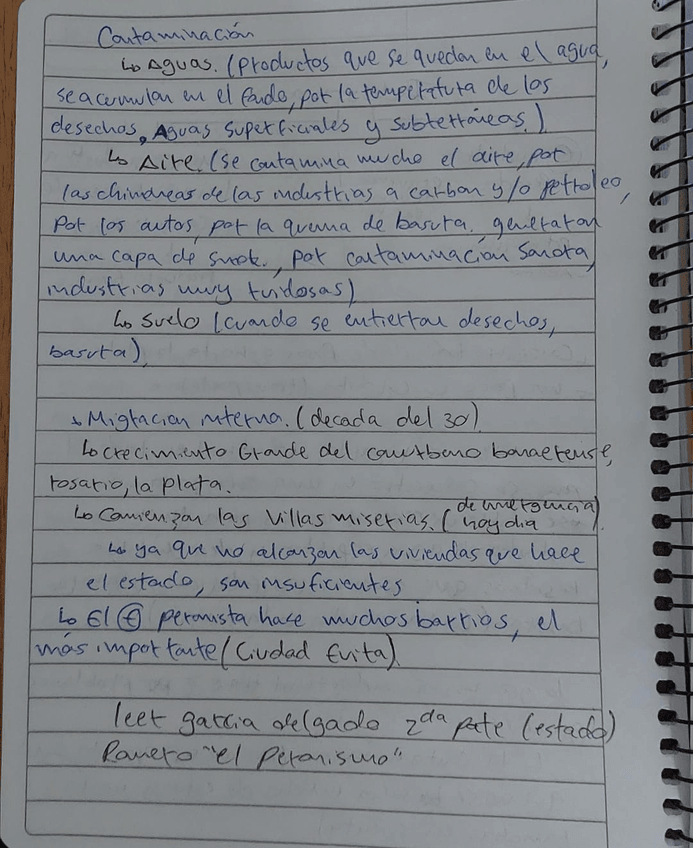 Contaminación
↳ Aguas. (productos que se quedan en el agua,
se acumulan en el fondo, por la temperatura de los
desechos, Aguas superficiales y subterráneas.)
↳ Aire. (se contamina mucho el aire, por
las chimineas de las industrias a carbon y/o petroleo,
por los autos, por la quema de basura. generaron
una capa de smok., por contaminación sonora,
industrias muy ruidosas)
↳ suelo (cuando se entierran desechos,
basura)
Migracion interna. (decada del 30)
↳ crecimiento Grande del conurbano bonaerense,
rosario, la plata.
↳ Comienzan las Villas miserias. (de emergencia hoy dia)
↳ ya que no alcanzan las viviendas que hace
el estado, son insuficientes
↳ El Ⓔ peronista hace muchos barrios, el
más importante (Ciudad Evita).
leer garcia delgado 2da pate (estado)
Romero "el peronismo"